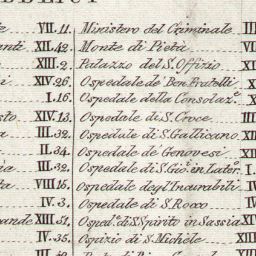 VII. 11. Ministero del Criminale III
anti XII. 42. Monte di Pietà VI
XIII. 2. Palazzo del S. Offizio XI
XIV. 26. Ospedale de' Ben Fratelli XI
I. 16. Ospedale della Consolaz.e X
sto XIV. 13. Ospedale di S. Croce III
a III. 32. Ospedale di S. Gallicano XI
II. 34. Ospedale de' Genovesi XI
ia III. 32. Ospedale di S. Gio: in Later.o I
ta VIII. 15. Ospedale degl' Incurabili IV
IV. 3. Ospedale di S. Rocco IV
rande XIII. 51. Osped.e di S. Spirito in Sassia XI
IV. 35. Ospizio di S. Michele XIII